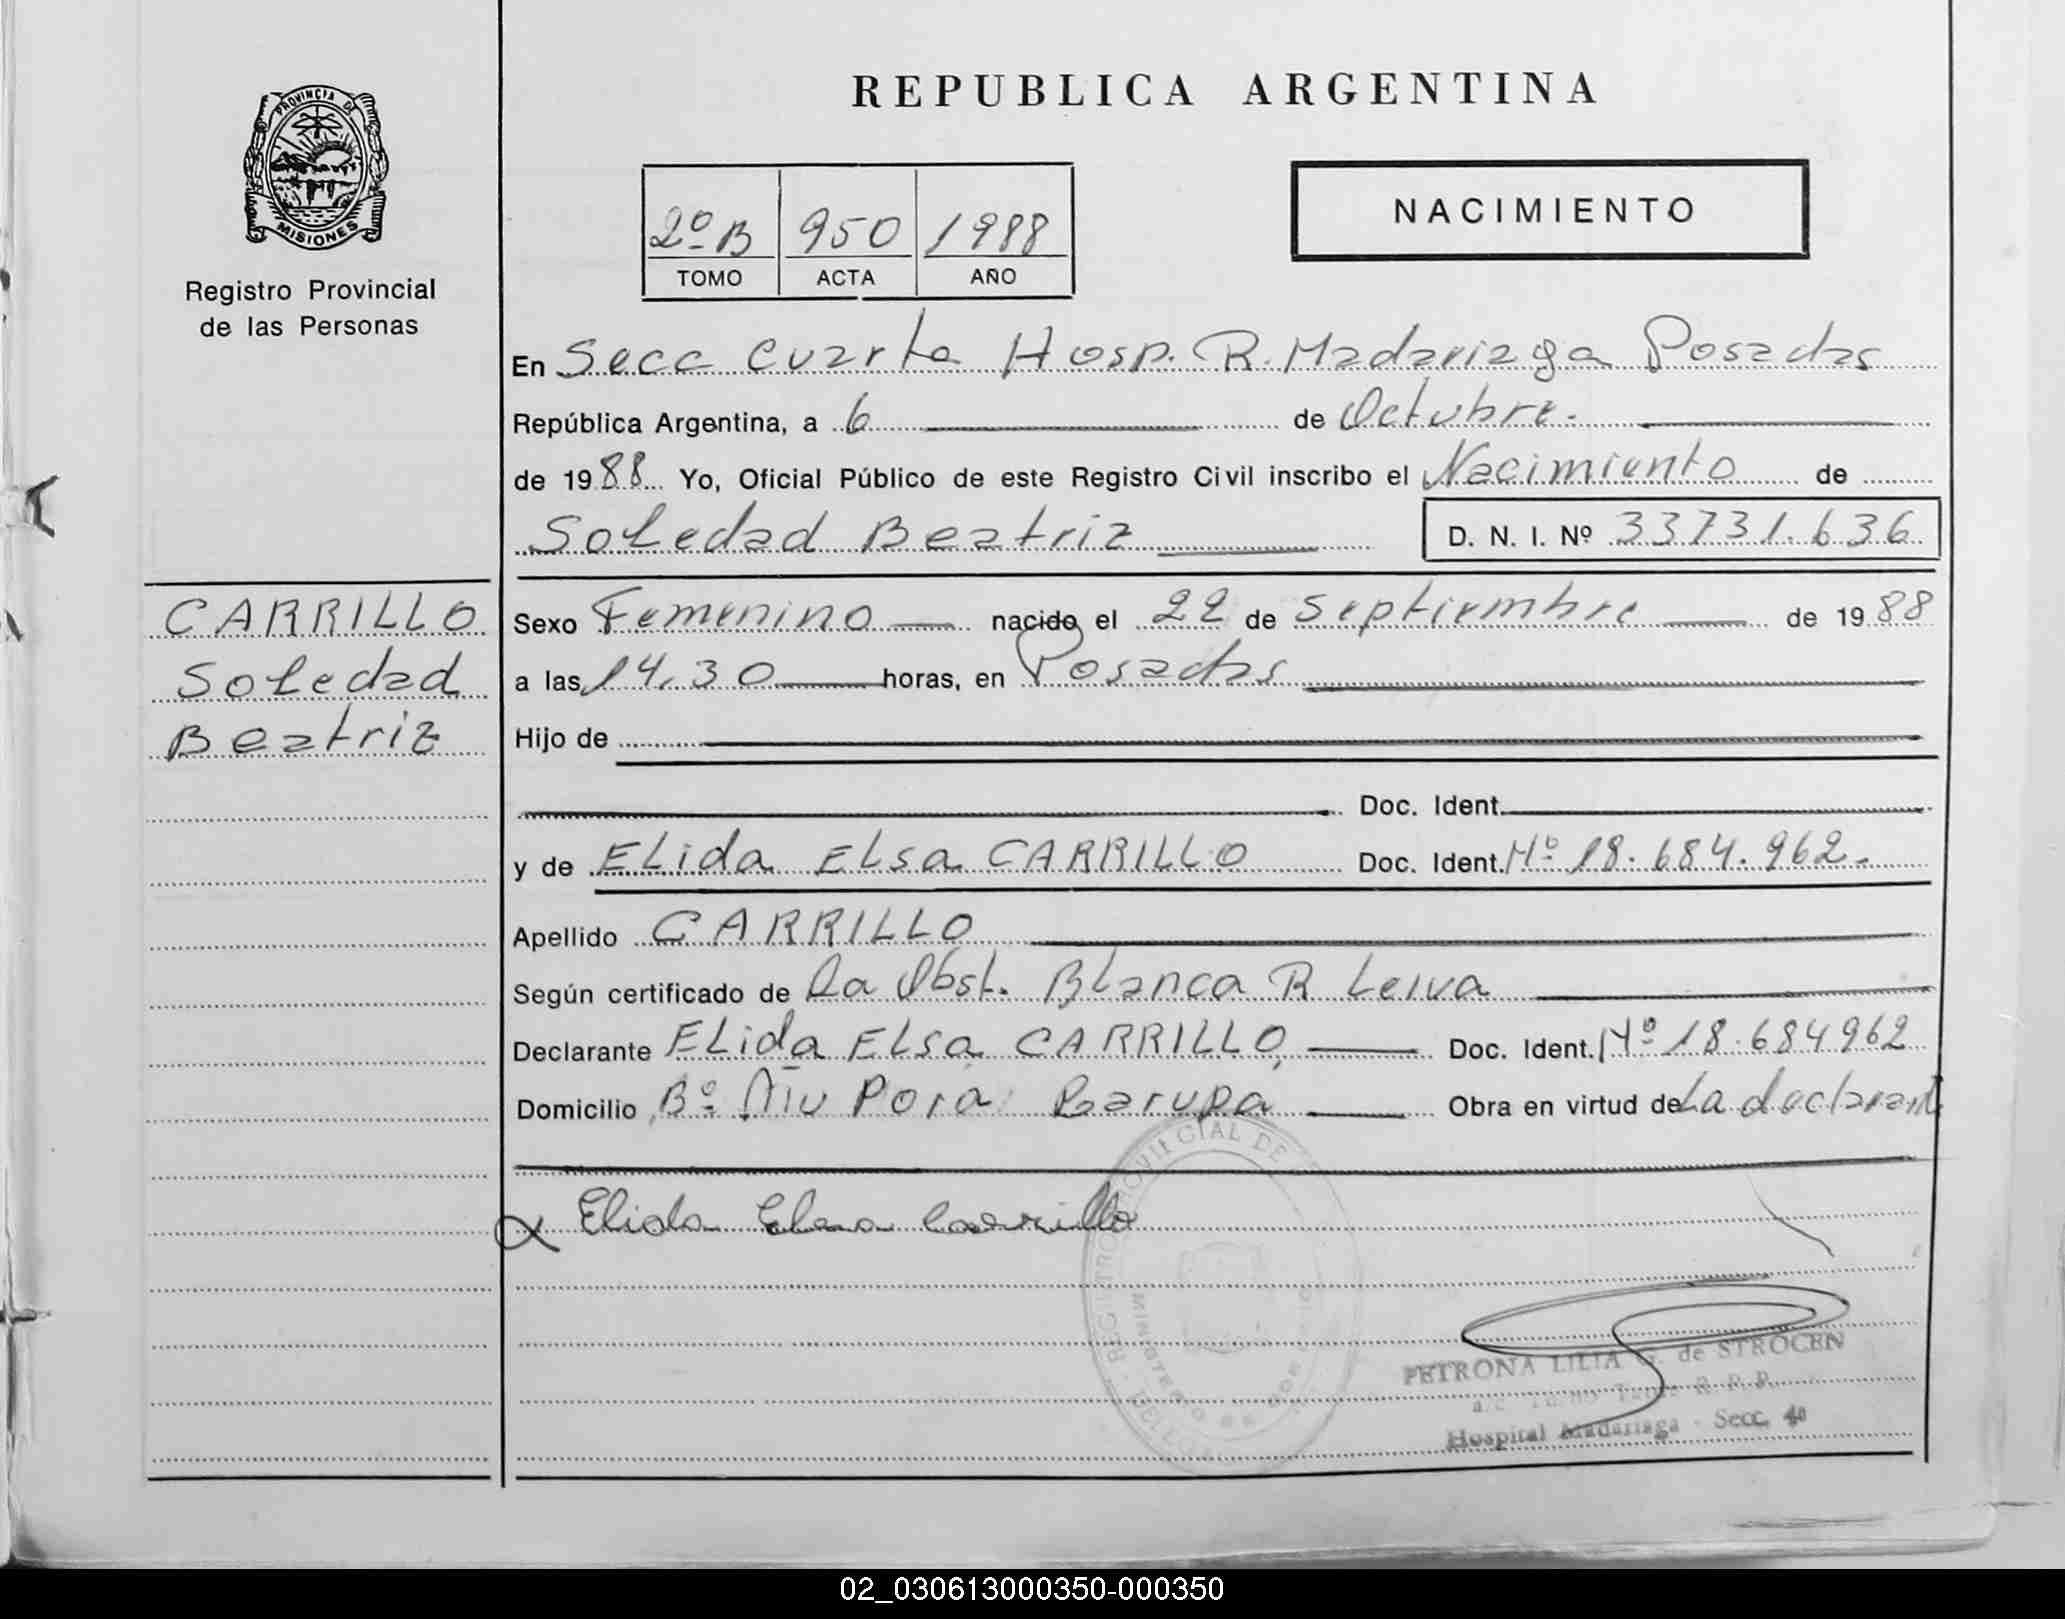 PROVINCIA DE
MISIONES
Registro Provincial
de las Personas
REPUBLICA ARGENTINA
2º B 950 1988
TOMO ACTA AÑO
NACIMIENTO
En Secc Cuarta Hosp. R. Madariaga Posadas
República Argentina, a 6 de Octubre.
de 1988 Yo, Oficial Público de este Registro Civil inscribo el Nacimiento de
Soledad Beatriz D. N. I. Nº 33731.636
CARRILLO
Soledad
Beatriz
Sexo Femenino nacido el 22 de Septiembre de 1988
a las 14.30 horas, en Posadas
Hijo de
Doc. Ident.
y de ELida ELsa CARRILLO Doc. Ident. Nº 18.684.962.
Apellido CARRILLO
Según certificado de La Obst. Blanca R Leiva
Declarante ELida ELsa CARRILLO, Doc. Ident. Nº 18.684962
Domicilio Bº Ñu Pora Garupa Obra en virtud de La declarant
Elida Elsa Carrillo
PETRONA LILIA G. de STROCEN
R. P. P.
Hospital Madariaga - Secc. 4ª
02_030613000350-000350